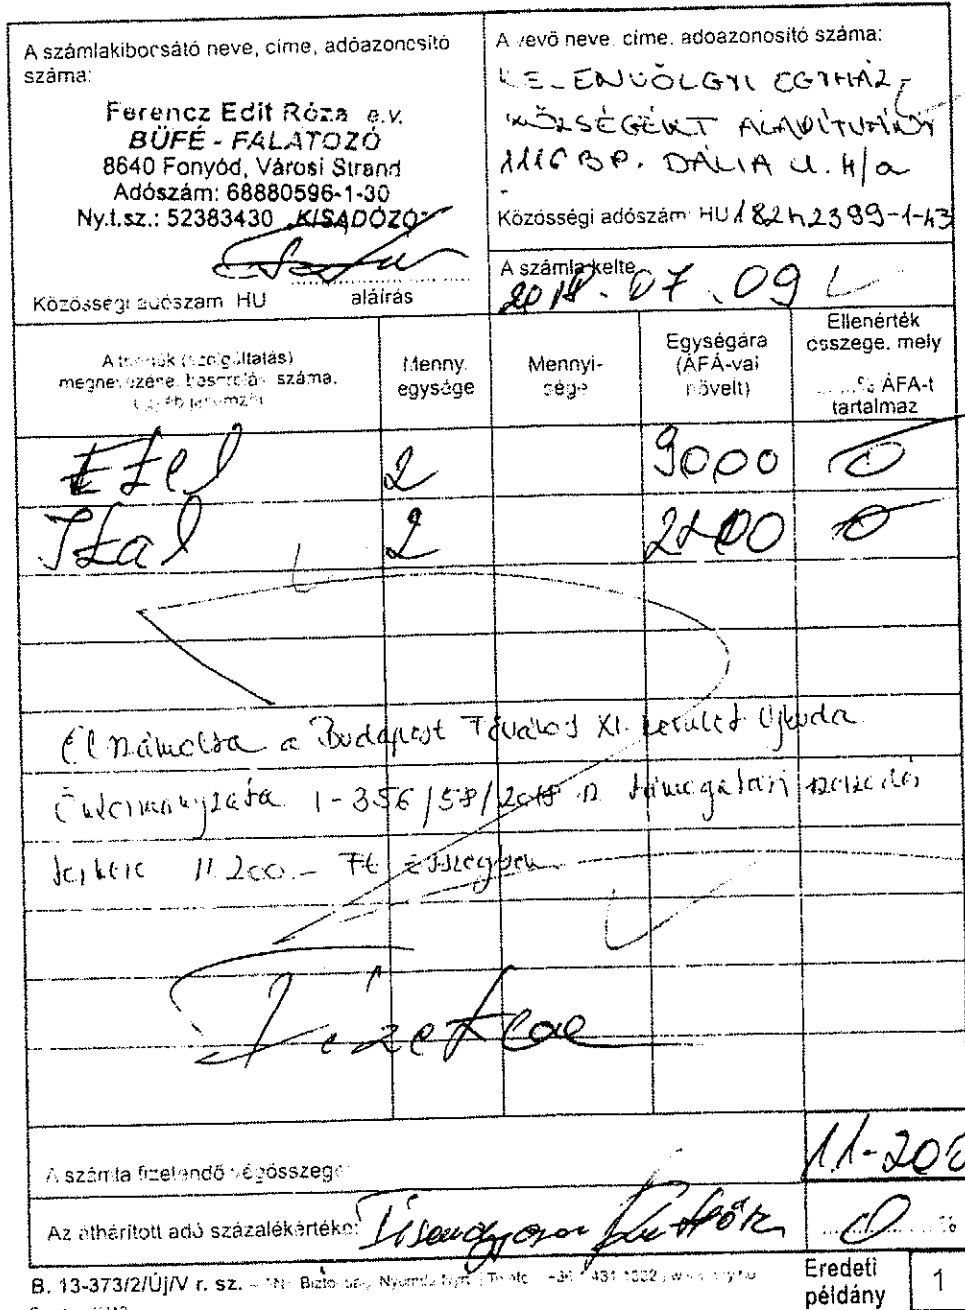 A számlakibocsátó neve, címe, adóazonosító
száma:
Ferencz Edit Róza e.v.
BÜFÉ - FALATOZÓ
8640 Fonyód, Városi Strand
Adószám: 68880596-1-30
Ny.t.sz.: 52383430 „KISADÓZÓ”
Közösségi adószám HU
aláírás
A vevő neve, címe, adóazonosító száma:
KELENVÖLGYI EGYHÁZ-
KÖZSÉGÉRT ALAPÍTVÁNY
1116 BP. DÁLIA U. 4/a
Közösségi adószám: HU 18242399-1-43
A számla kelte
2018.07.09
A termék (szolgáltatás)
megnevezése, besorolási száma,
egyéb jellemzői
Menny.
egysége
Mennyi-
sége
Egységára
(ÁFÁ-val
növelt)
Ellenérték
összege, mely
% ÁFA-t
tartalmaz
Étel 2 9000 0
Ital 2 2200 0
Elszámolva a Budapest Főváros XI. kerület Újbuda
Önkormányzata 1-356/58/2018 sz. támogatási szerződés
terhére 11.200.- Ft összegben
Fizetve
A számla fizetendő végösszege: 11-200
Az áthárított adó százalékértéke: 0 %
B. 13-373/2/Új/V r. sz.
Eredeti
példány
1